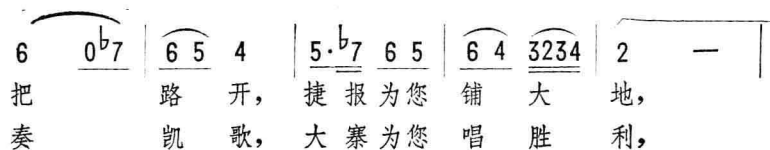 6 0♭7 | 6 5 4 | 5·♭7 6 5 | 6 4 3234 | 2 — |
把 路 开, 捷 报 为 您 铺 大 地,
奏 凯 歌, 大 寨 为 您 唱 胜 利,